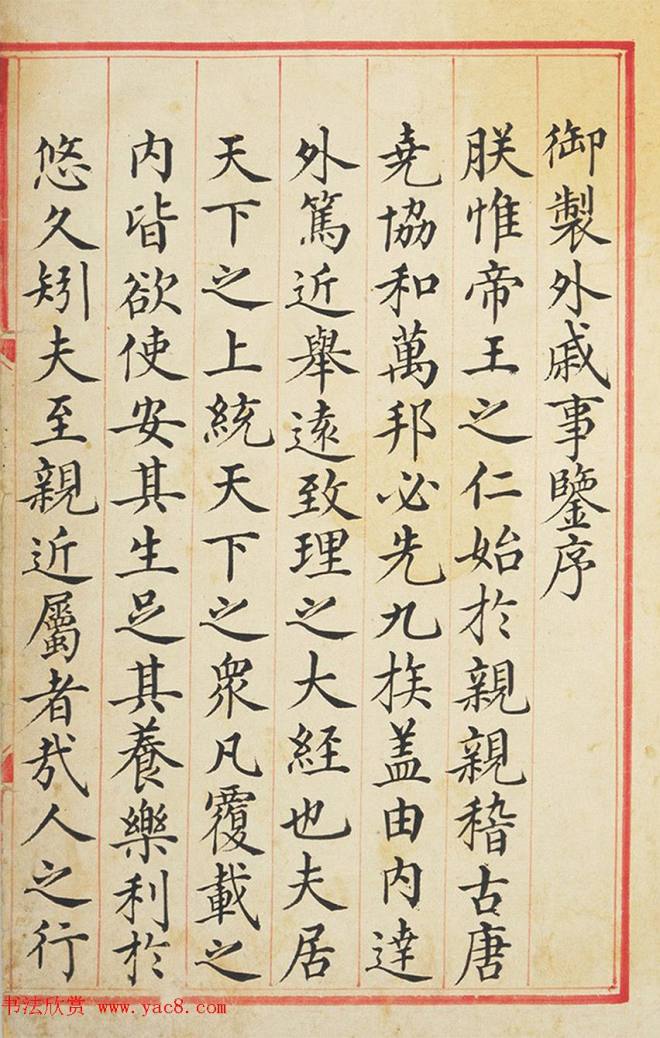 御製外戚事鑒序
朕惟帝王之仁始於親親稽古唐
堯協和萬邦必先九族蓋由內達
外篤近舉遠致理之大經也夫居
天下之上統天下之眾凡覆載之
內皆欲使安其生足其養樂利於
悠久矧夫至親近屬者哉人之行
书法欣赏 www.yac8.com